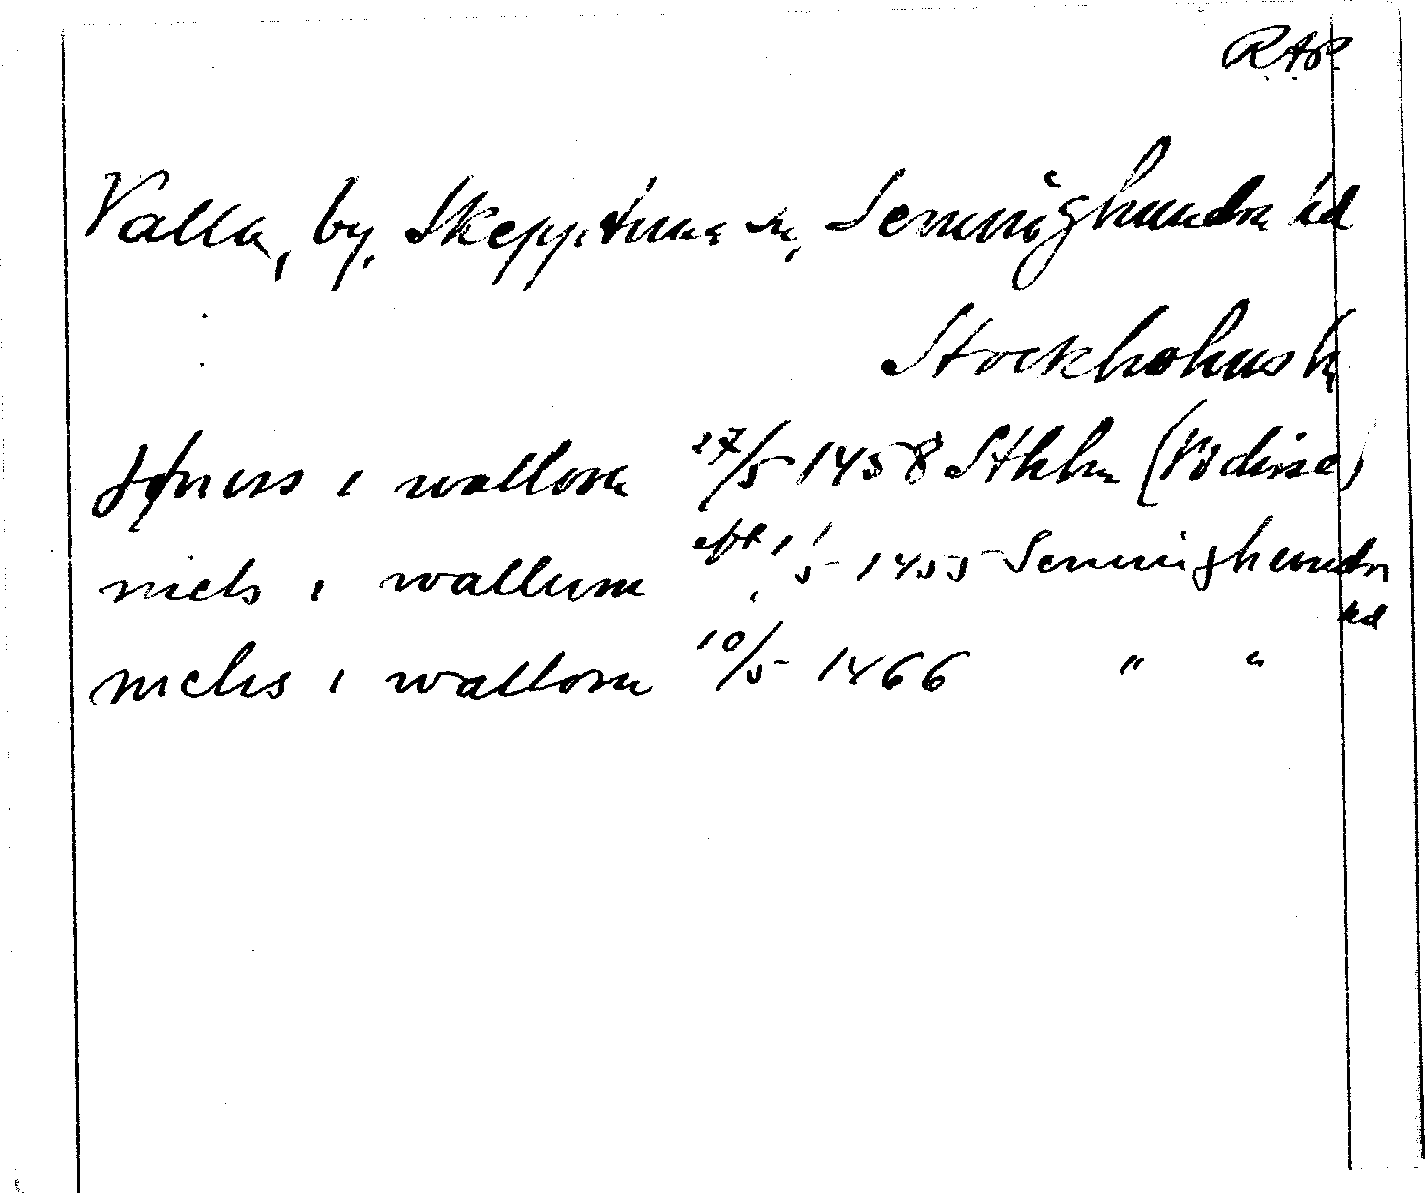 RAP.
Valla, by, Skepptuna sn, Seminghundra hd
Stockholms l.
i wallom 27/5 1458 Sthlm
niels i wallum eft 1/5 1455 Seminghundra
hd
niclis i wallom 10/5 1466 " "